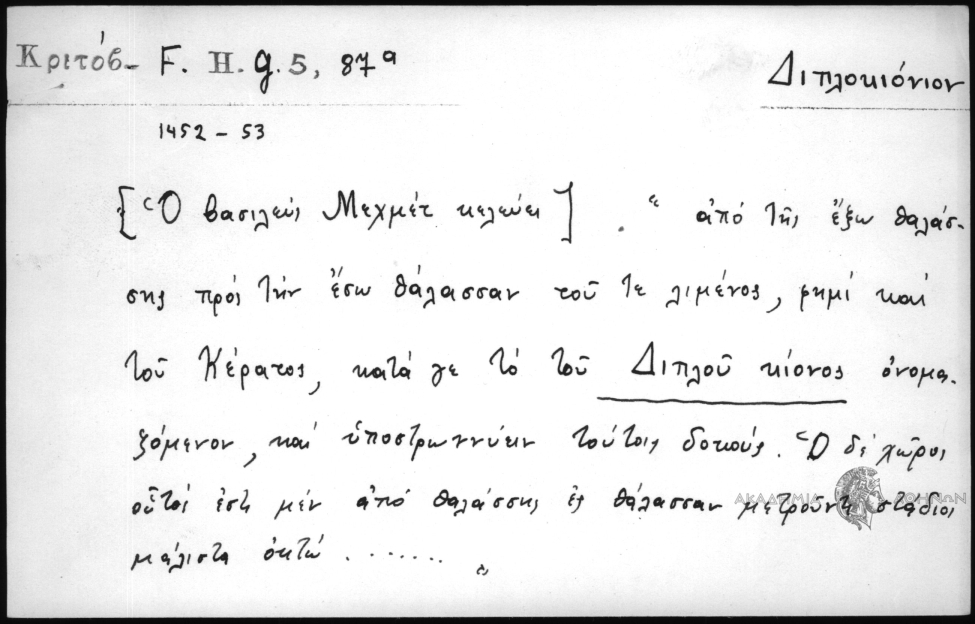 Κριτόβ- F. H. g. 5, 87ᵃ
Διπλοκιόνιον
1452 - 53
[Ὁ βασιλεύς Μεχμέτ κελεύει] . " ἀπό τῆς ἔξω θαλάσ-
σης πρός τήν ἔσω θάλασσαν τοῦ τε λιμένος, φημί καί
τοῦ Κέρατος, κατά γε τό τοῦ Διπλοῦ κίονος ὀνομα-
ζόμενον, καί ὑποστρωννύειν τούτοις δοκούς. Ὁ δέ χῶρος
οὗτός ἐστι μέν ἀπό θαλάσσης ἐς θάλασσαν μετροῦντι σταδίοι
μάλιστα ὀκτώ . ...... "
ΑΚΑΔΗΜΙΑ ΑΘΗΝΩΝ